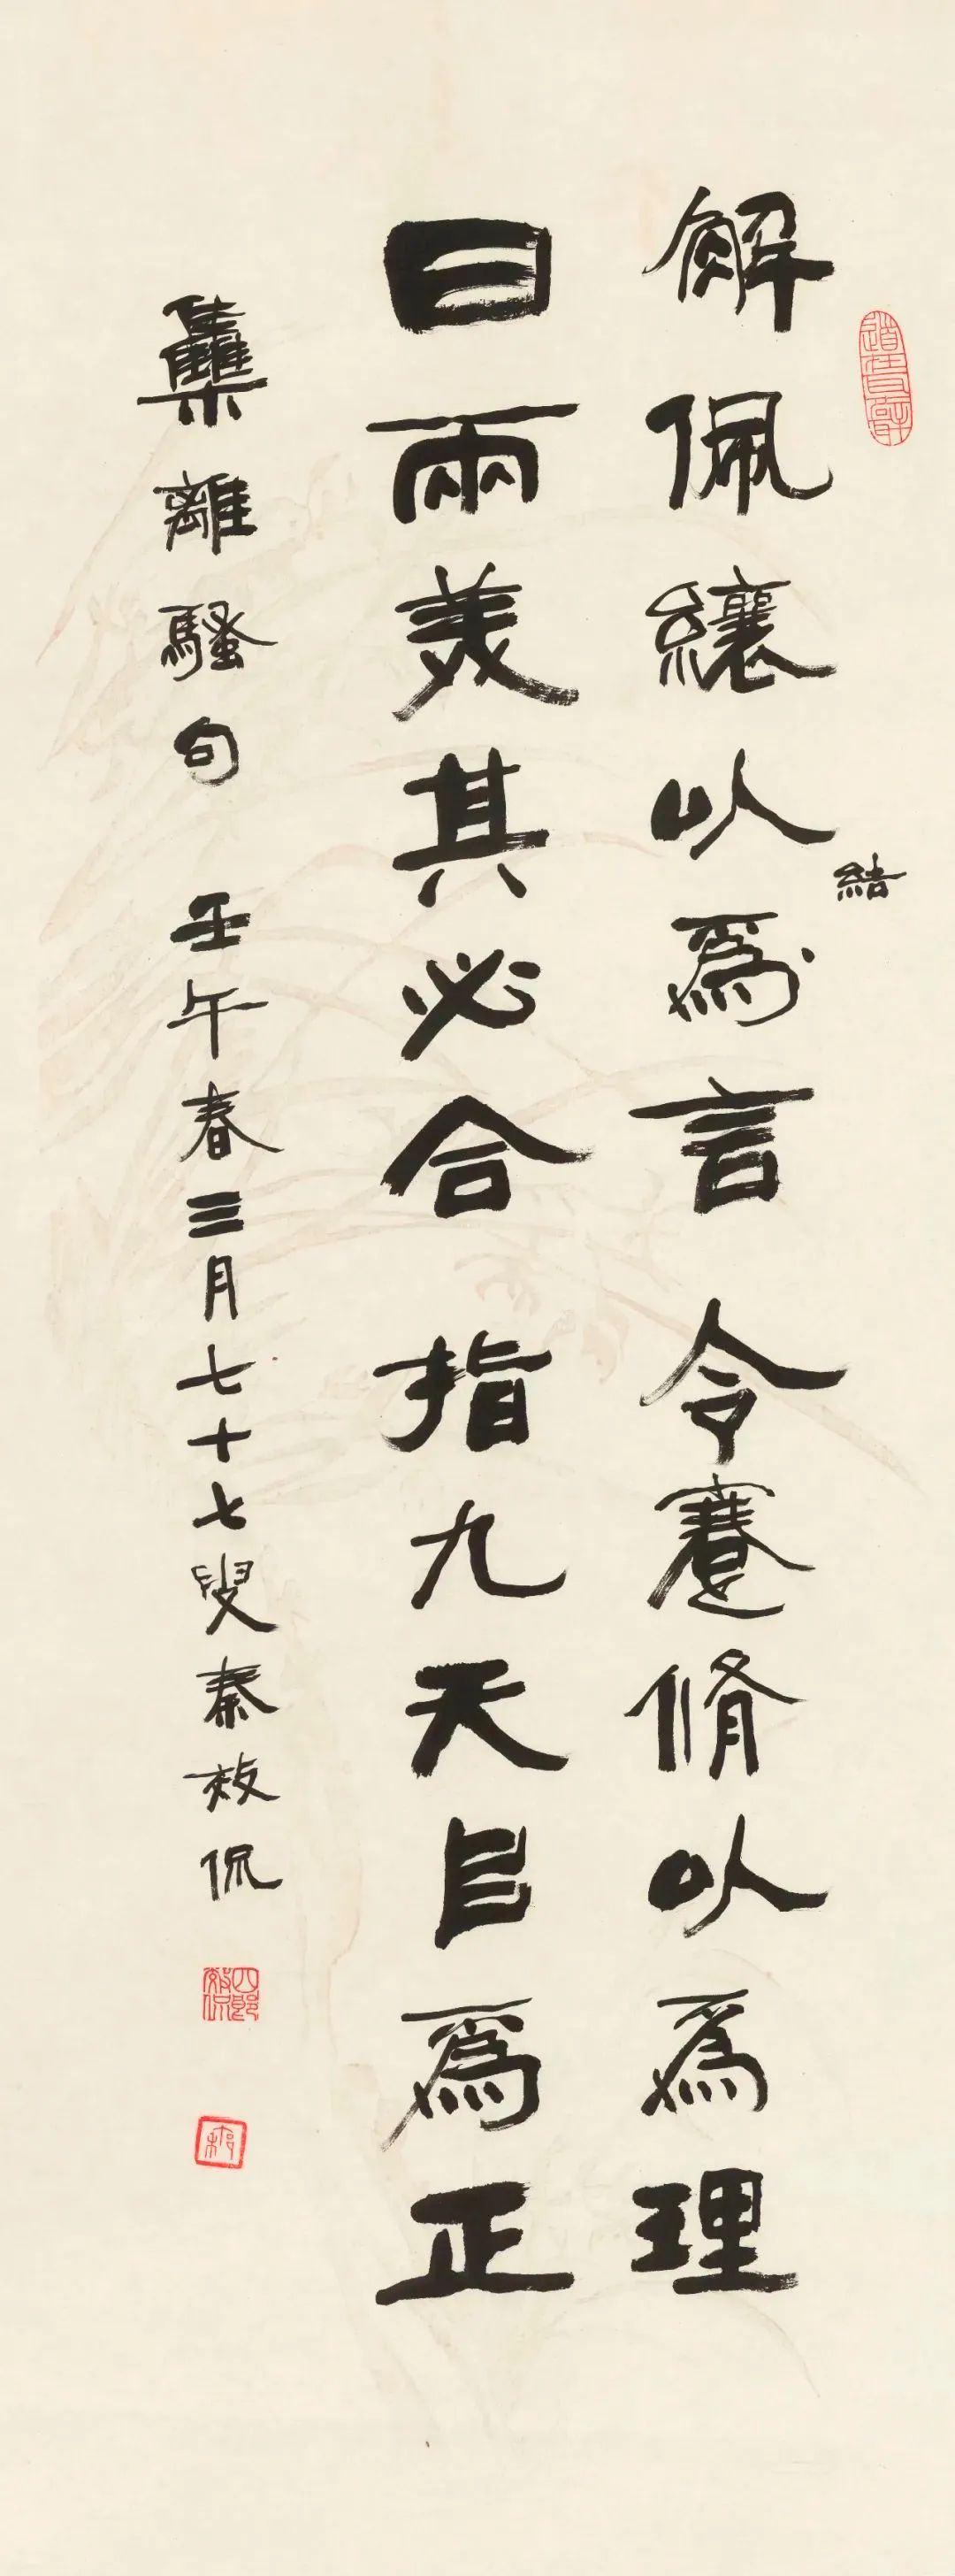 解佩纕以爲言 令蹇脩以爲理
結
曰兩美其必合 指九天㠯爲正
雧離騷句 壬午春三月七十七叟秦效侃
四郎效侃